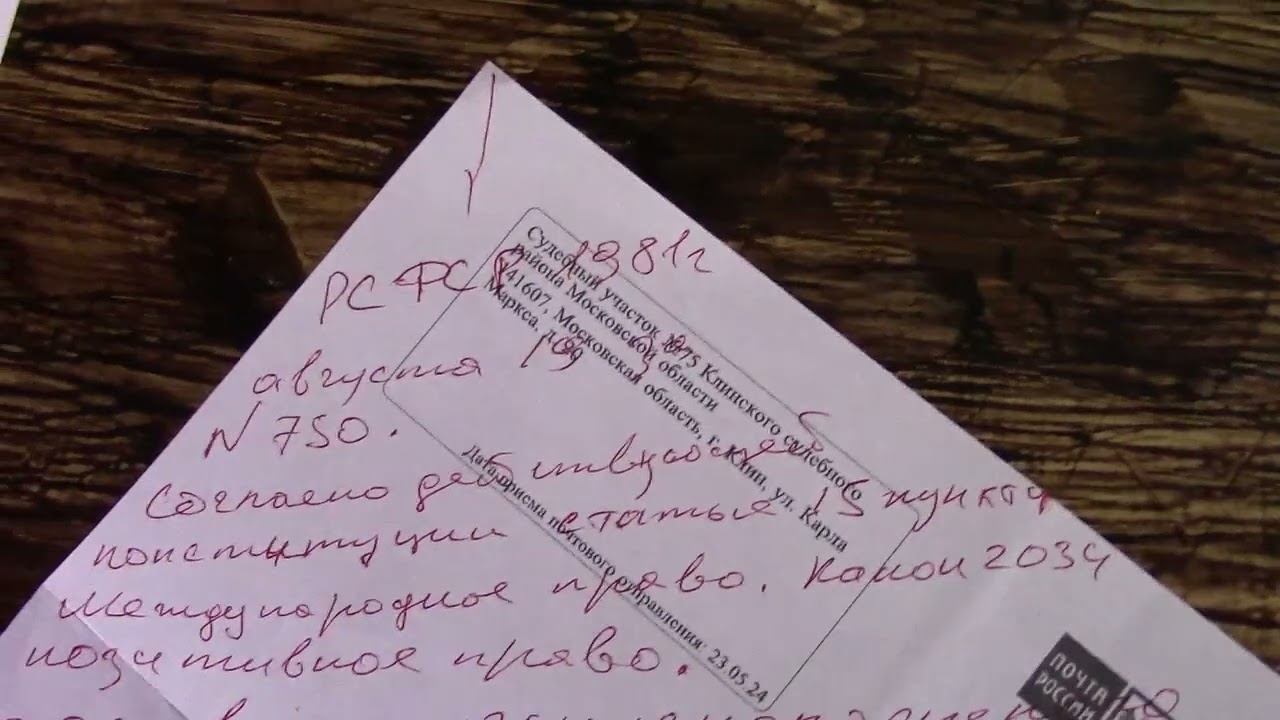 РСФСР 1981г
августа 19
N 750.
Согласно действующей
конституции статья 15 пункт 4
международное право. Канон 2034
позитивное право.
Судебный участок №75 Клинского судебного
района Московской области
141607, Московская область, г. Клин, ул. Карла
Маркса, д.
Дата приема почтового отправления: 23.05.24
ПОЧТА
РОССИИ